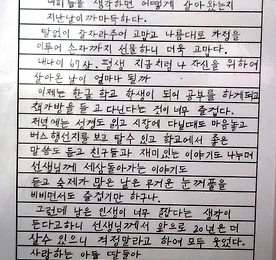 너희들을 생각하면 어떻게 살아왔는지
지난날이 까마득하다.
탈없이 잘자라주어 고맙고 나름대로 가정을
이루어 손자까지 선물하니 더욱 고맙다.
내나이 67살. 평생 지금처럼 나 자신을 위하여
살아온 날이 얼마나 될까
이제는 한글 학교 학생이 되어 공부를 하게되고
책가방을 들고 다닌다는 것이 너무 즐겁다.
저녁에는 서경도 읽고 시장에 다닐때도 마음놓고
버스 행선지를 보고 탈수 있고 학교에서 좋은
말씀도 듣고 친구들과 재미있는 이야기도 나누며
선생님께 세상돌아가는 이야기도
듣고 숙제가 많은 날은 무거운 눈꺼풀을
비비면서도 즐겁기만 하구나.
그런데 남은 인생이 너무 짧다는 생각이
든다고하니 선생님께서 앞으로 20년은 더
살수 있으니 걱정말라고 하여 모두 웃었다.
사랑하는 아들 딸들아